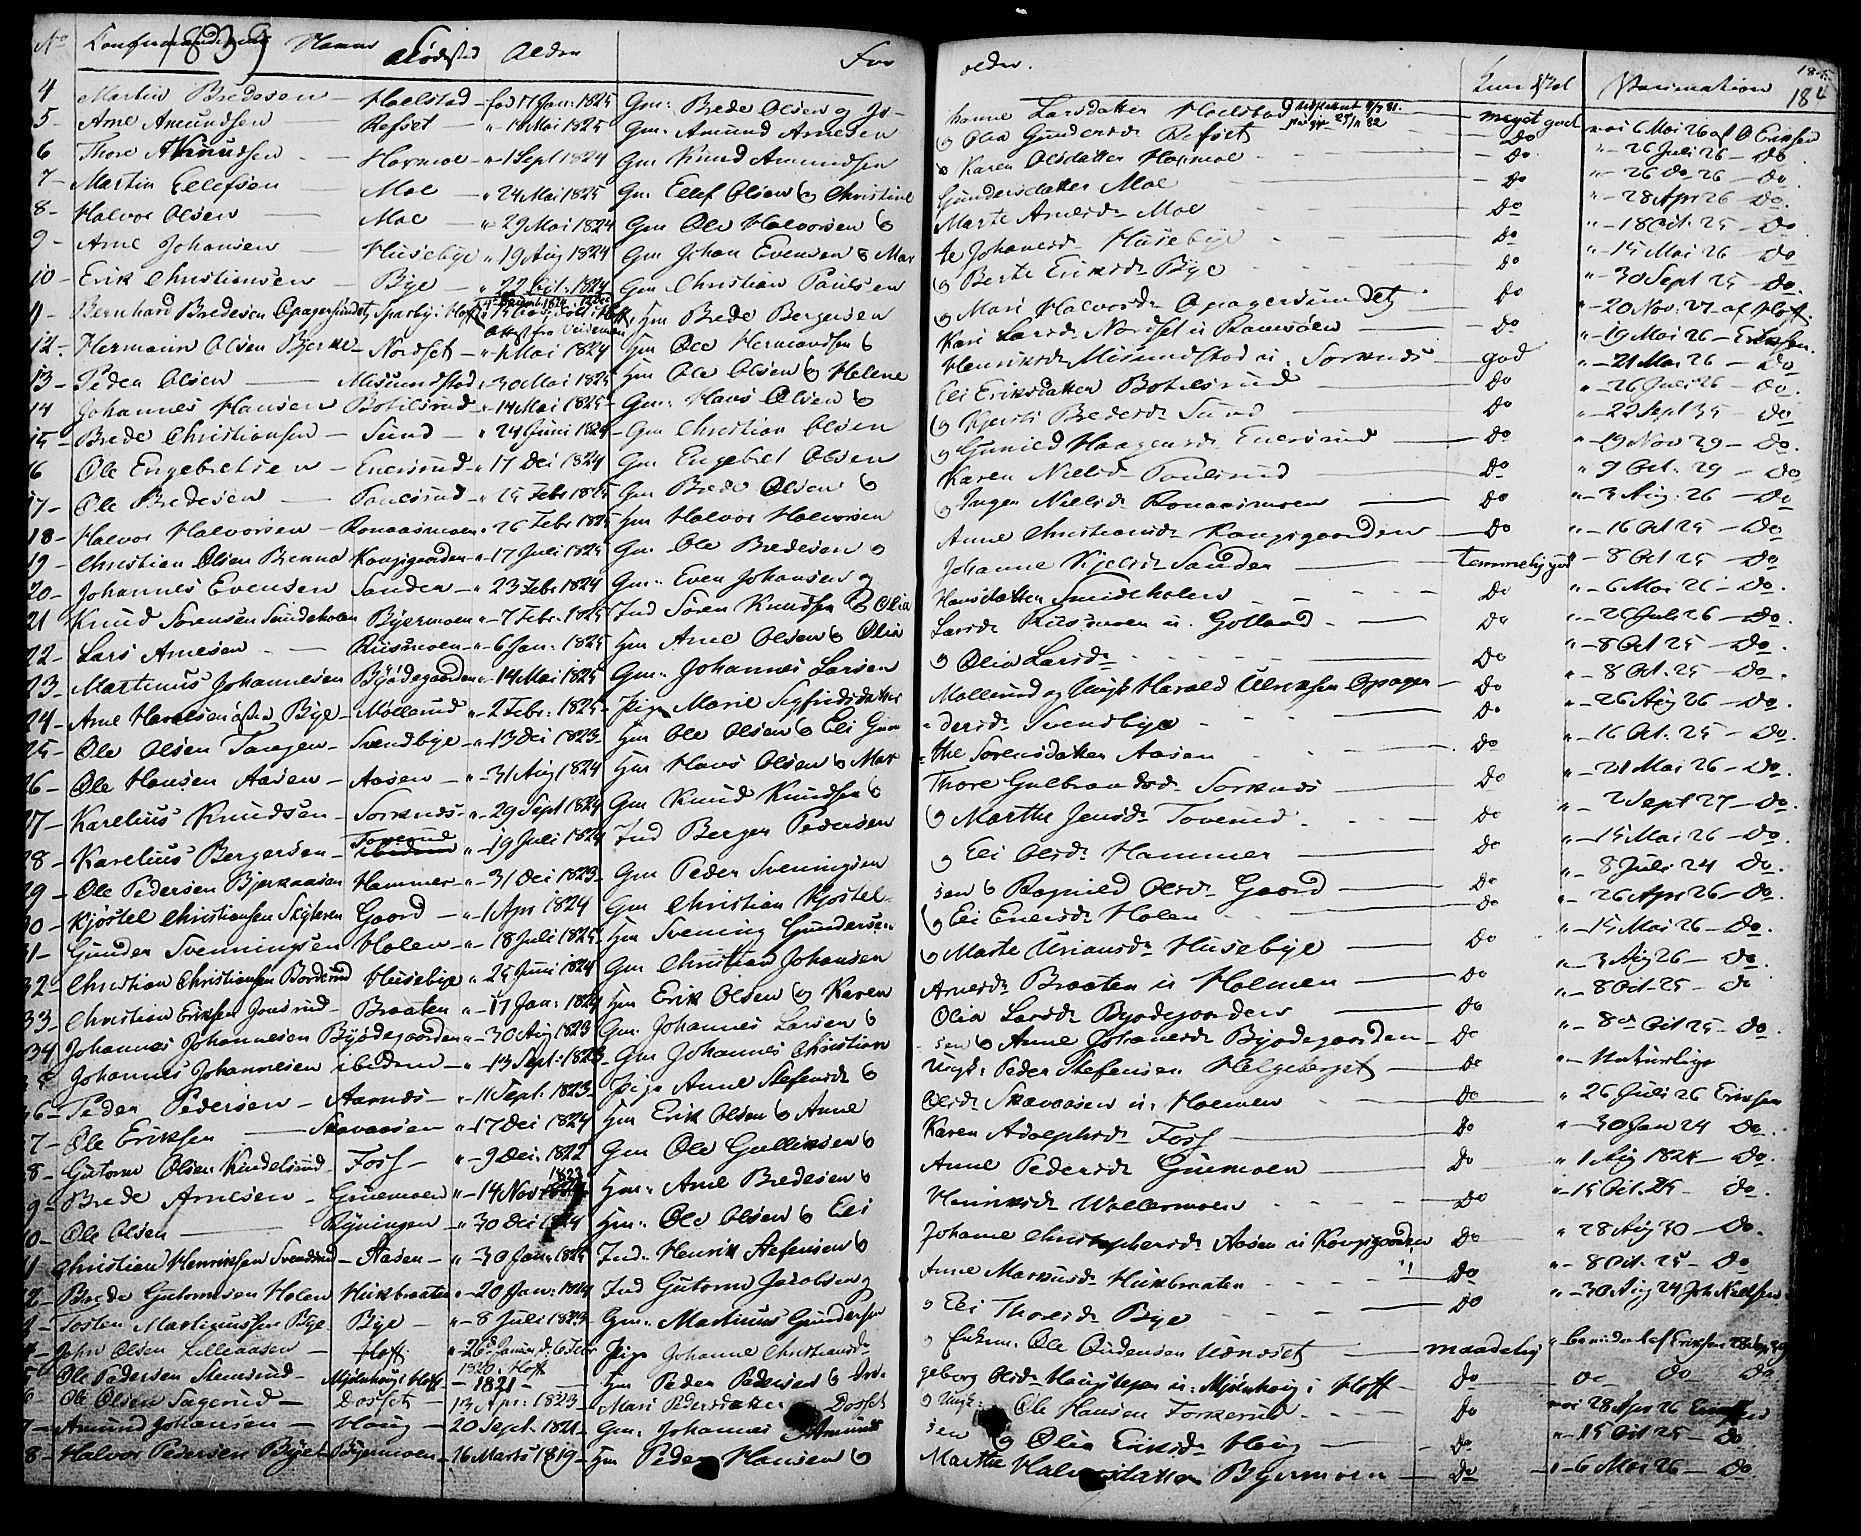 No Confirmandernes Navne Fødested Alder For ældre. Kundskab Vaccination
1839 184
4 Martin Bredesen – Hoelstad – fød 17 Jan: 1825 Gm: Brede Olsen og Jo- hanne Larsdatter Hoelstad meget god 6 Mai 26 af O Eriksen
5 Arne Amundsen – Refset – " 18 Mai 1825 Gm: Amund Arnesen og Olia Gundersdr Refset Do " 26 Juli 26 – Do
6 Thore Knudsen – Hoxmoe – " 1 Sept 1824 Gm Knud Amundsen og Karen Olsdatter Hoxmoe – Do " 26 Do 26 – Do
7 – Martin Ellefsen – Moe – " 24 Mai 1825 Gm Ellef Olsen og Christine Gundersdatter Moe Do " 28 Apr 26 – Do
8 – Halvor Olsen – Moe – " 29 Mai 1824 Gm Ole Halvorsen og Marte Arnesdr Moe Do " 18 Oct. 25 – Do
9 – Arne Johansen – Husebye " 19 Aug 1824 Gm Johan Evensen og Mar te Johansdr Husebye Do " 15 Mai 26 – Do
10 – Erik Christiansen – Bye – " 22 Oct. 1824 Gm Christian Paulsen og Berte Eriksdr Bye Do " 30 Sept 25 – Do
11 – Bernhard Bredesen Opagersundet Sparby i Hoff Hm Brede Bergersen og Mari Halvorsdr Opagersundet Do " 20 Nov: 27 af Hoff
12 – Hermann Olsen Bjerke – Nordset – " 1 Mai 1824 Hm Ole Hermandsen og Kari Larsdr Nordset u Ramsøen – Do " 19 Mai 26 – Eriksen
13 – Peder Olsen – Misundstad " 30 Mai 1825 Hm Ole Olsen og Helene Henriksdr Misundstad u. Sorknes – god " 21 Mai 26 – Do
14 Johannes Hansen Botilsrud – " 14 Mai 1825 Gm: Hans Olsen og Eli Eriksdatter Botilsrud – Do " 26 Juli 26 – Do
15 – Brede Christiansen – Sund – " 24 Juni 1824 – Gm Christian Olsen og Kjersti Bredesdr Sund Do " 22 Sept 35 – Do
16 Ole Engebretsen – Enersrud – " 17 Dec 1824 Gm Engebret Olsen og Gunild Haagensdr Enersrud – Do " 19 Nov 29 – Do
17 – Ole Bredesen – Poulsrud – " 25 Febr 1825 Gm Brede Olsen og Karen Nielsdr Poulsrud Do " 9 Oct. 29 – Do
18 – Halvor Halvorsen – Ronaasmoen " 26 Febr 1825 Hm Halvor Halvorsen og Inger Nielsdr Ronaasmoen – Do " 3 Aug. 26 – Do
19 – Christian Olsen Brenna Kongsgaarden – " 17 Juli 1825 Gm Ole Bredesen og Anne Christiansdr Kongsgaarden – Do " 16 Oct 25 – Do
20 – Johannes Evensen Sanden – " 23 Febr 1824 Gm: Even Johansen og Johanne Kjelsdr Sanden – temmelig god " 8 Oct 25 – Do
21 Knud Sorensen Smideholen Byermoen – " 7 Febr. 1825 Ind Soren Knudsen og Olia Hansdatter Smideholen – Do " 6 Mai 26 – Do
22 – Lars Arnesen – Riismoen – " 6 Jan: 1825 Hm Arne Olsen og Olia Larsdr Riismoen u. Gotland – Do " 26 Juli 26 – Do
23 – Martinus Johannesen Byødegaarden – " 14 Mai 1825 Gm: Johannes Larsen og Olia Larsdr Do " 8 Oct 25 – Do
24 – Arne Bye – Mollerud – " 2 Febr: 1825 – Pige Marie Sigfridsdatter Mollerud og Ungk Harald Ulriksen Opager – Do " 8 Oct. 25 – Do
25 – Ole Olsen Tangen – Svendbye – " 13 Dec 1823 – Hm Ole Olsen og Eli Gun dersdr Svendbye Do " 26 Aug 26 – Do
26 – Ole Hansen Aasen – Aasen – " 31 Aug 1824 Hm Hans Olsen og Mar the Sorensdatter Aasen Do " 16 Oct. 25 – Do
27 – Karelius Knudsen – Sorknes – " 29 Sept 1824 Gm Knud Knudsen og Thore Gulbrandsdr Sorknes – Do " 21 Mai 26 – Do
28 – Karelius Bergersen – Toverud – " 19 Juli 1824 Ind Berger Pedersen og Marthe Jensdr Toverud Do " 2 Sept 27 – Do
29 – Ole Pedersen Bjerkaasen Hammer – " 31 Dec 1823 – Gm Peder Sveningsen og Eli Olsdr Hammer – Do " 15 Mai 26 – Do
30 – Kjøstel Christiansen Skyteren Gaard – " 1 Apr 1824 Gm Christian Kjøstel- sen og Ragnild Olsdr Gaard – Do " 8 Juli 24 Do
31 – Gunder Svenningsen Holen – " 18 Juli 1825 – Hm Svening Gundersen og Eli Enersdr Holen Do " 26 Apr 26 – Do
32 – Christian Christiansen Bordsrud Husebye " 25 Juni 1824 Gm Christian Johansen og Marte Uriansdr Husebye – Do " 15 Mai 26 – Do
33 – Christian Eriksen Jonsrud – Braaten – " 17 Jan: 1824 Hm Erik Olsen og Karen Arnesdr Braaten u Holmen – Do " 3 Aug 26 – Do
34 Johannes Johannesen Byødegaarden – " 30 Aug 1823 Gm: Johannes Larsen og Olia Larsdr Byødegaarden – Do " 8 Oct. 25 – Do
Johannes Johannesen ibidem – " 13 Sept: 1823 – Gm Johannes Christian sen og Anne Johansdr Byødegaarden – Do " 8de Oct 25 – Do
36 – Peder Pedersen – Aarnes – " 11 Sept. 1823 – Pige Anne Stefensdr og Ungk: Peder Stefensen Helgeberget – Do " Naturlige
7 – Ole Eriksen – Skavaasen " 17 Dec 1824 Hm Erik Olsen og Anne Olsdr Skavaasen u. Holmen Do " 26 Juli 26 Eriksen
8 – Gutorm Olsen Kindelsrud – Foss – " 9 Dec. 1822 Gm Ole Gulliksen og Karen Adolphsdr Foss – Do " 30 Jan 24 Do
9 – Brede Arnesen – Gruemoen " 14 Nov 1823 Hm: Arne Bredesen og Anne Pedersdr Gruemoen – Do " 1 Aug 1824 – Do
0 – Ole Olsen – Ryningen " 30 Dec 1824 Hm: Ole Olsen og Eli Henriksdr Wollermoen Do " 15 Oct. 25 – Do
1 Christian Henriksen Svendsrud – Aasen – " 30 Jan: 1825 Ind: Henrik Stefensen og Johanne Christophersdr Aasen u Kongsgaarden Do " 28 Aug 30 – Do
2 – Brede Gutormsen Holen Huksbraaten " 20 Jan: 1824 Ind Gutorm Jacobsen og Anne Markusdr Huksbraaten Do " 8 Oct. 25 – Do
3 – Tosten Martinussen Bye Bye – " 8 Juli 1823 – Gm: Martinus Gundersen og Eli Thoresdr Bye Do " 30 Aug 24 Joh Nielsen
4 – John Olsen Lilleaasen – Hoff Pige Johanne Christiansdr og Enkem: Ole Oudensen Udnæset – maadelig
5 Ole Pedersen Stensrud – Mjølnhoug i Hoff – 1821 – Hm Peder Pedersen og In- geborg Olsdr Haugstepen u: Mjølnhoug i Hoff – Do Do Do
6 – Ole Olsen Sagerud – Dosset – 13 Apr: 1823 – Mari Pedersdatter Dosset og Ungk: Ole Hansen Do 28 Apr 26
7 – Amund Johansen – Houg – 20 Sept. 1824 – Gm: Johannes Amund sen og Olia Eriksdr Houg – Do " 15 Oct 25 – Do
8 – Halvor Pedersen Byermoen – 16 Marts 1819 – Hm Peder Hansen og Marthe Halvorsdatter Byermoen – Do " 6 Mai 26 – Do